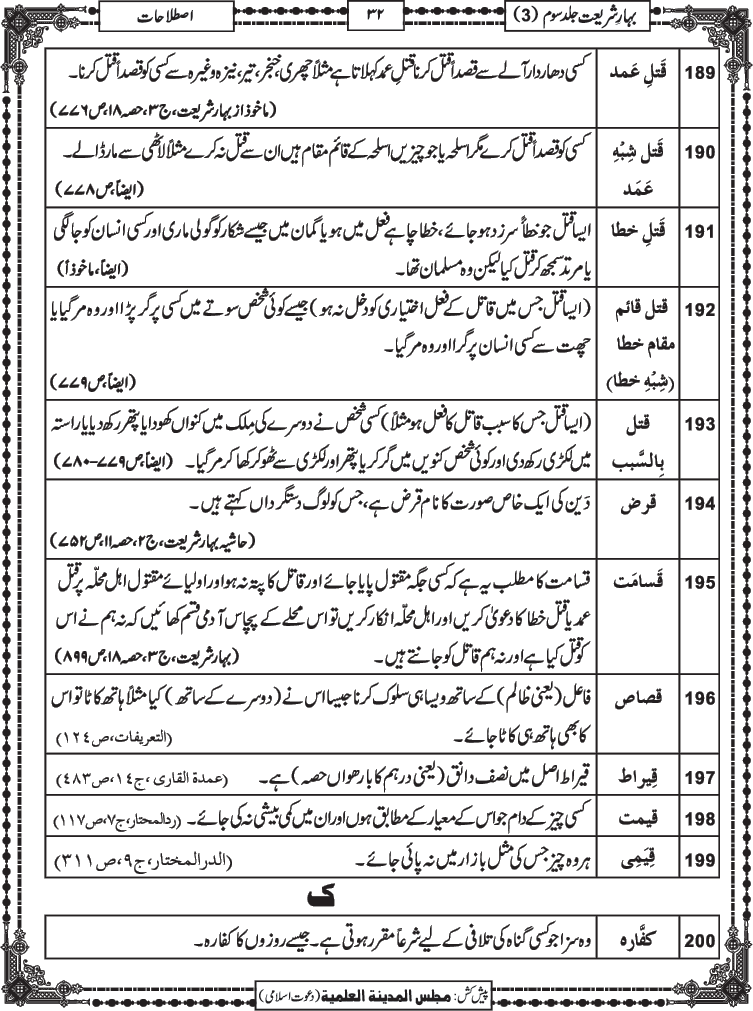 بہار شریعت جلد سوم (3) ۳۲ اصطلاحات
189 قَتلِ عَمد کسی دھاردار آلے سے قصداً قتل کرنا قتلِ عمد کہلاتا ہے مثلاً چھری، خنجر، تیر، نیزہ وغیرہ سے کسی کو قصداً قتل کرنا۔
(ماخوذ از بہار شریعت، ج۳، حصہ ۱۸، ص۷۷۶)
190 قَتل شِبْهِ کسی کو قصداً قتل کرے مگر اسلحہ یا جو چیزیں اسلحہ کے قائم مقام ہیں ان سے قتل نہ کرے مثلاً لاٹھی سے مار ڈالے۔
عَمَد (ایضاً، ص۷۷۸)
191 قَتلِ خطا ایسا قتل جو خطأً سرزد ہو جائے، خطا چاہے فعل میں ہو یا گمان میں جیسے شکار کو گولی ماری اور کسی انسان کو جا لگی
یا مرتد سمجھ کر قتل کیا لیکن وہ مسلمان تھا۔ (ایضاً، ماخوذاً)
192 قتل قائم (ایسا قتل جس میں قاتل کے فعل اختیاری کو دخل نہ ہو) جیسے کوئی شخص سوتے میں کسی پر گر پڑا اور وہ مر گیا یا
مقام خطا چھت سے کسی انسان پر گرا اور وہ مر گیا۔
(شِبْهِ خطا) (ایضاً، ص۷۷۹)
193 قتل (ایسا قتل جس کا سبب قاتل کا فعل ہو مثلاً) کسی شخص نے دوسرے کی مِلک میں کنواں کھودا یا پتھر رکھ دیا یا راستہ
بِالسَّبب میں لکڑی رکھ دی اور کوئی شخص کنویں میں گر کر یا پتھر اور لکڑی سے ٹھوکر کھا کر مر گیا۔ (ایضاً، ص۷۷۹-۷۸۰)
194 قرض دَین کی ایک خاص صورت کا نام قرض ہے، جس کو لوگ دستگرداں کہتے ہیں۔
(حاشیہ بہار شریعت، ج۲، حصہ ۱۱، ص۷۵۲)
195 قَسامَت قسامت کا مطلب یہ ہے کہ کسی جگہ مقتول پایا جائے اور قاتل کا پتہ نہ ہو اور اولیائے مقتول اہل محلّہ پر قتل
عمد یا قتل خطا کا دعویٰ کریں اور اہل محلّہ انکار کریں تو اس محلے کے پچاس آدمی قسم کھائیں کہ نہ ہم نے اس
کو قتل کیا ہے اور نہ ہم قاتل کو جانتے ہیں۔ (بہار شریعت، ج۳، حصہ ۱۸، ص۸۹۹)
196 قصاص فاعل (یعنی ظالم) کے ساتھ ویسا ہی سلوک کرنا جیسا اس نے (دوسرے کے ساتھ) کیا مثلاً ہاتھ کاٹا تو اس
کا بھی ہاتھ ہی کاٹا جائے۔ (التعريفات، ص۱۲٤)
197 قِیراط قیراط اصل میں نصف دانق (یعنی درہم کا بارھواں حصہ) ہے۔ (عمدة القاری، ج۱٤، ص٤۸۳)
198 قیمت کسی چیز کے دام جو اس کے معیار کے مطابق ہوں اور ان میں کمی بیشی نہ کی جائے۔ (ردالمحتار، ج۷، ص۱۱۷)
199 قِیَمِی ہر وہ چیز جس کی مثل بازار میں نہ پائی جائے۔ (الدر المختار، ج۹، ص۳۱۱)
ک
200 کفّارہ وہ سزا جو کسی گناہ کی تلافی کے لیے شرعاً مقرر ہوتی ہے۔ جیسے روزوں کا کفارہ۔
پیش کش: مجلس المدينة العلمية (دعوت اسلامی)